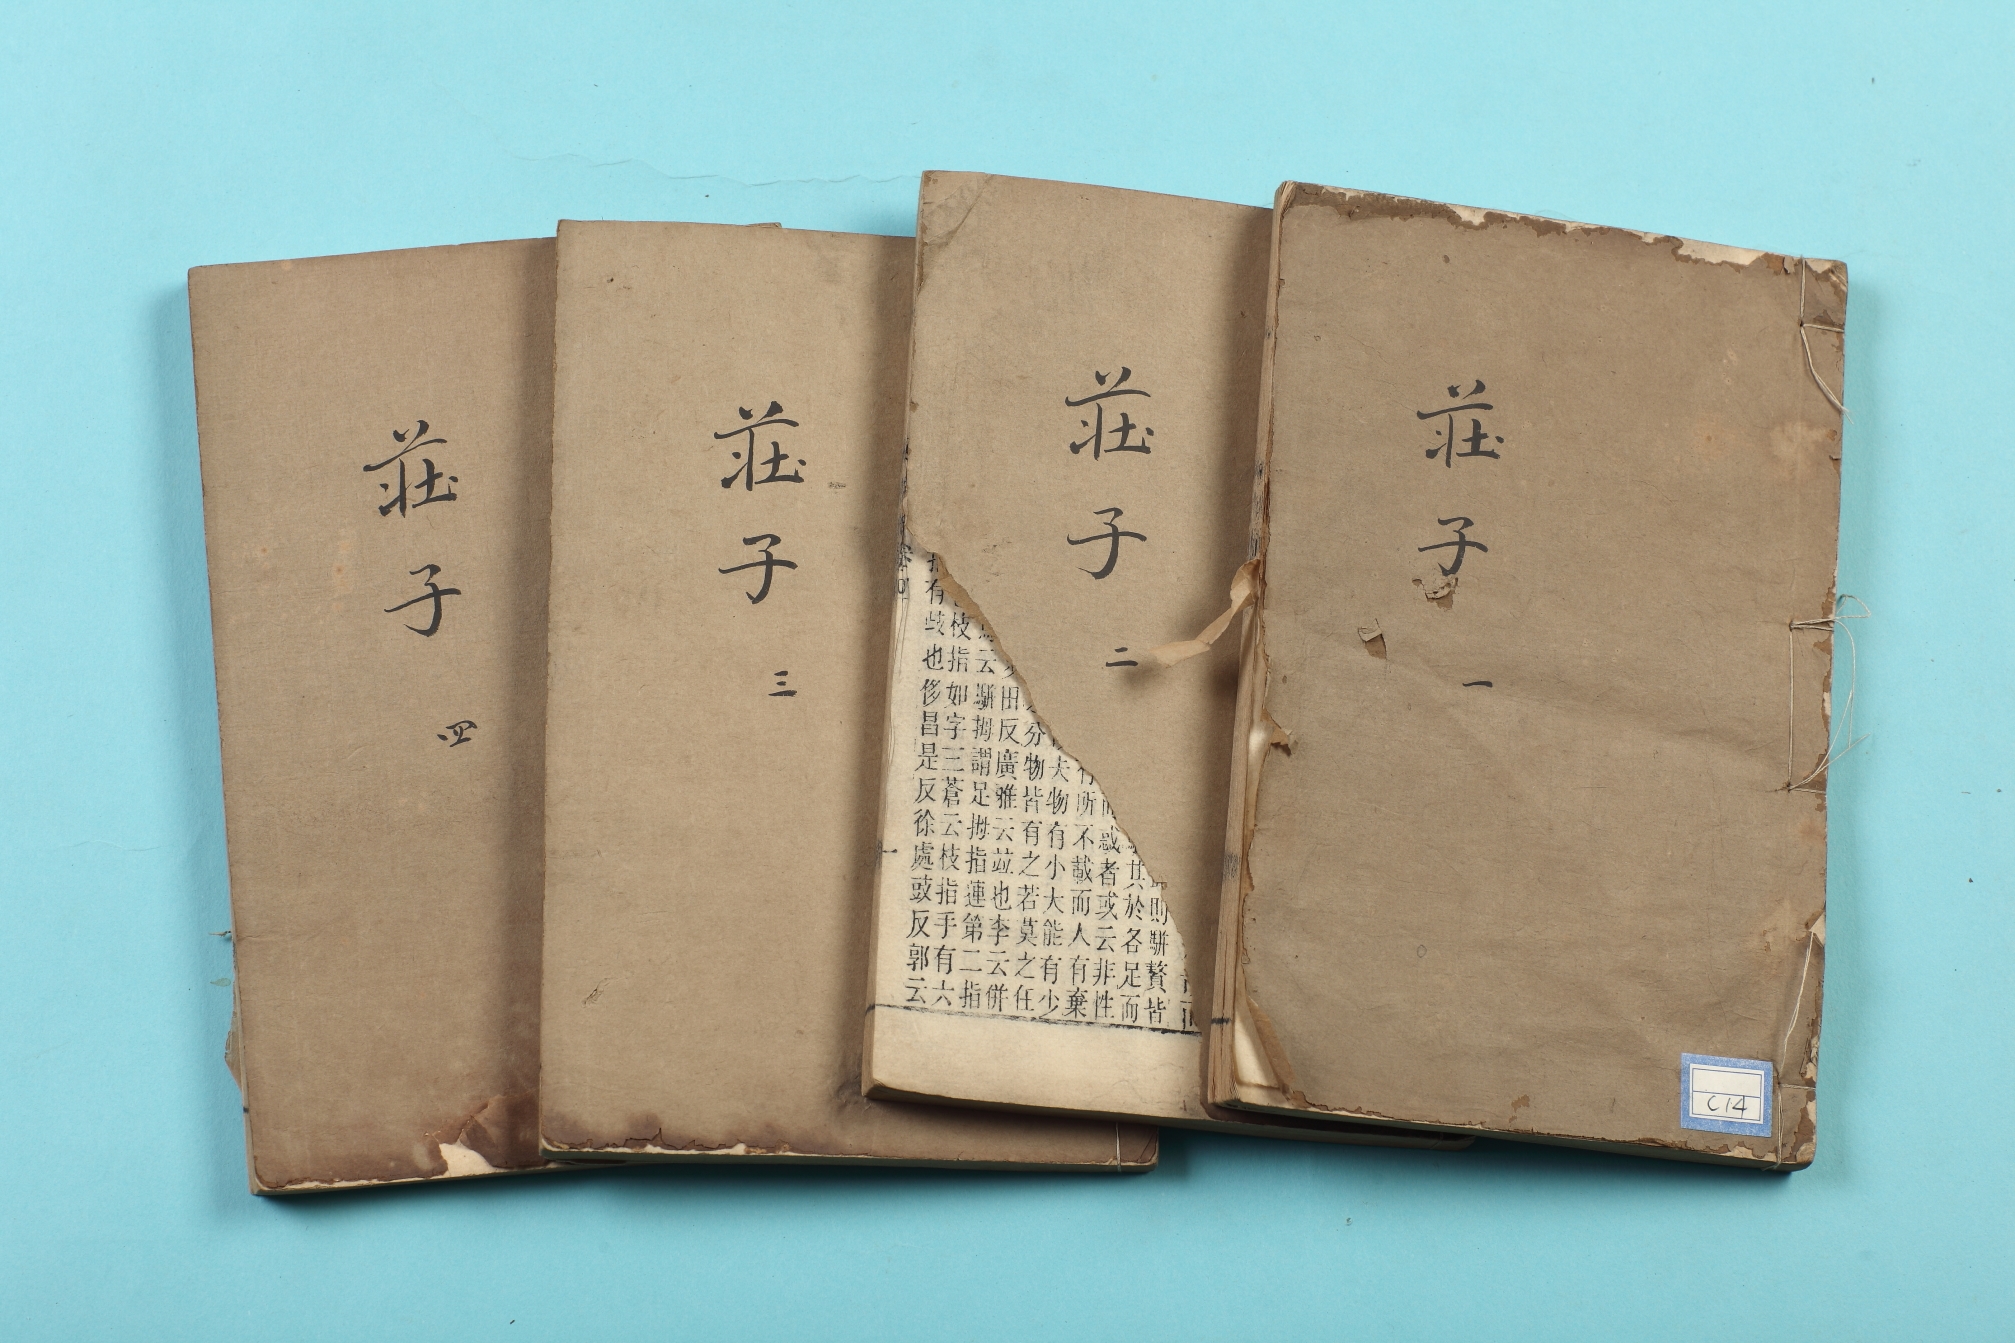 莊子 一
莊子 二
則駢贅皆
其於各足而
惑者或云非性
所不載而人有棄
物有小大能有少
分物皆有之若莫之任
田反廣雅云竝也李云併
云駢拇謂足拇指連第二指
枝指如字三蒼云枝指手有六
有歧也侈昌是反徐處豉反郭云
莊子 三
莊子 四
C14